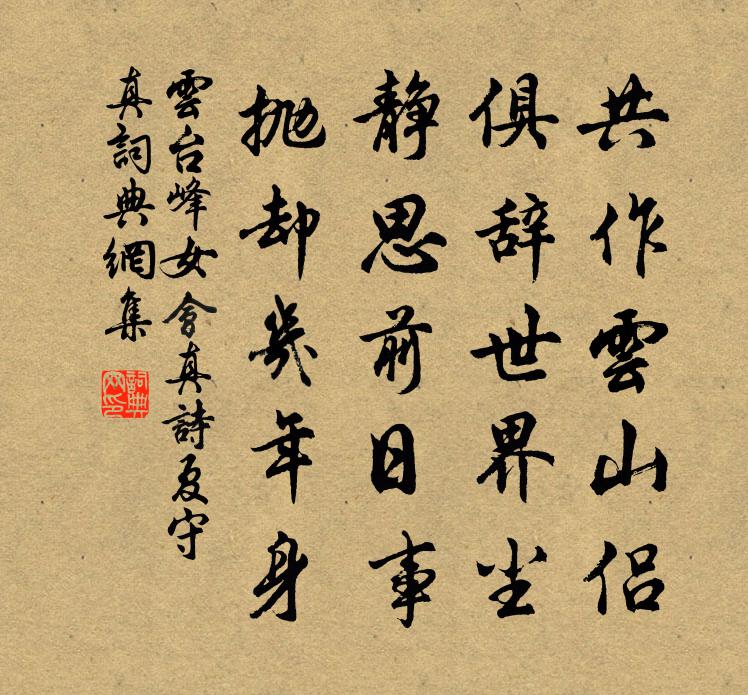 共作雲山侶
俱辞世界尘
静思前日事
抛却幾年身
雲台峰女會真詩夏守
真詞典網集
詞典
网印